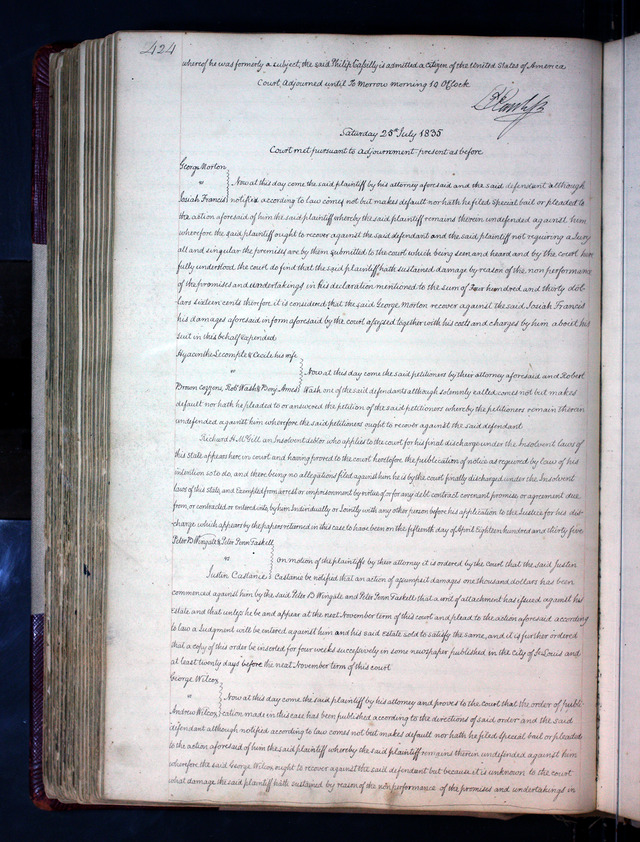 424
whereof he was formerly a subject, the said Philip Cafferly is admitted a Citizen of the United States of America
Court Adjourned until To Morrow morning 10 O'Clock
Saturday 25th July 1835
Court met pursuant to adjournment present as before
George Morton
vs
Now at this day come the said plaintiff by his attorney aforesaid and the said defendant although
Josiah Francis notified according to law comes not but makes default nor hath he filed Special bail or pleaded to
the action aforesaid of him the said plaintiff whereby the said plaintiff remains therein undefended against him
wherefore the said plaintiff ought to recover against the said defendant and the said plaintiff not requiring a Jury
all and singular the premises are by them submitted to the court which being seen and heard and by the court here
fully understood the court do find that the said plaintiff hath sustained damage by reason of the non performance
of the promises and undertakings in his declaration mentioned to the sum of Four hundred and thirty dol-
lars sixteen cents therefor it is considered that the said George Morton recover against the said Josiah Francis
his damages aforesaid in form aforesaid by the court assessed together with his costs and charges by him about his
suit in this behalf expended
Hyacinthe Lecompte & Cecile his wife
vs
Now at this day come the said petitioners by their attorney aforesaid and Robert
Brown Cozzens, Robt Wash & Benj Ames Wash one of the said defendants although solemnly called comes not but makes
default nor hath he pleaded to or answered the petition of the said petitioners where by the petitioners remain therein
undefended against him wherefore the said petitioners ought to recover against the said defendant
Richard H. McGill an Insolvent debtor who applies to the court for his final discharge under the Insolvent laws of
this state appears here in court and having proved to the court heretofore the publication of notice as required by law of his
intention so to do, and there being no allegations filed against him he is by the court finally discharged under the Insolvent
laws of this state, and Exempted from arrest or imprisonment by virtue of or for any debt contract covenant promise or agreement due
from, or contracted or entered into, by him Individually or Jointly with any other person before his application to the Justice for his dis-
charge which appears by the papers returned in this case to have been on the fifteenth day of April Eighteen hundred and thirty five
Peter B Wingate & Peter Penn Gaskell
vs
On motion of the plaintiffs by their attorney it is ordered by the court that the said Justin
Justin Castanie Castanie be notified that an action of assumpsit damages one thousand dollars has been
commenced against him by the said Peter B Wingate and Peter Penn Gaskell that a writ of attachment has issued against his
Estate and that unless he be and appear at the next November term of this court and plead to the action aforesaid according
to law a Judgment will be entered against him and his said estate sold to satisfy the same, and it is further ordered
that a copy of this order be inserted for four weeks successively in some newspaper published in the City of St. Louis and
at least twenty days before the next November term of this court
George Wilcox
vs
Now at this day come the said plaintiff by his attorney and proves to the court that the order of publi-
Andrew Wilcox cation made in this case has been published according to the directions of said order and the said
defendant although notified according to law comes not but makes default nor hath he filed Special bail or pleaded
to the action aforesaid of him the said plaintiff whereby the said plaintiff remains therein undefended against him
wherefore the said George Wilcox ought to recover against the said defendant but because it is unknown to the court
what damage the said plaintiff hath sustained by reason of the non performance of the promises and undertakings in